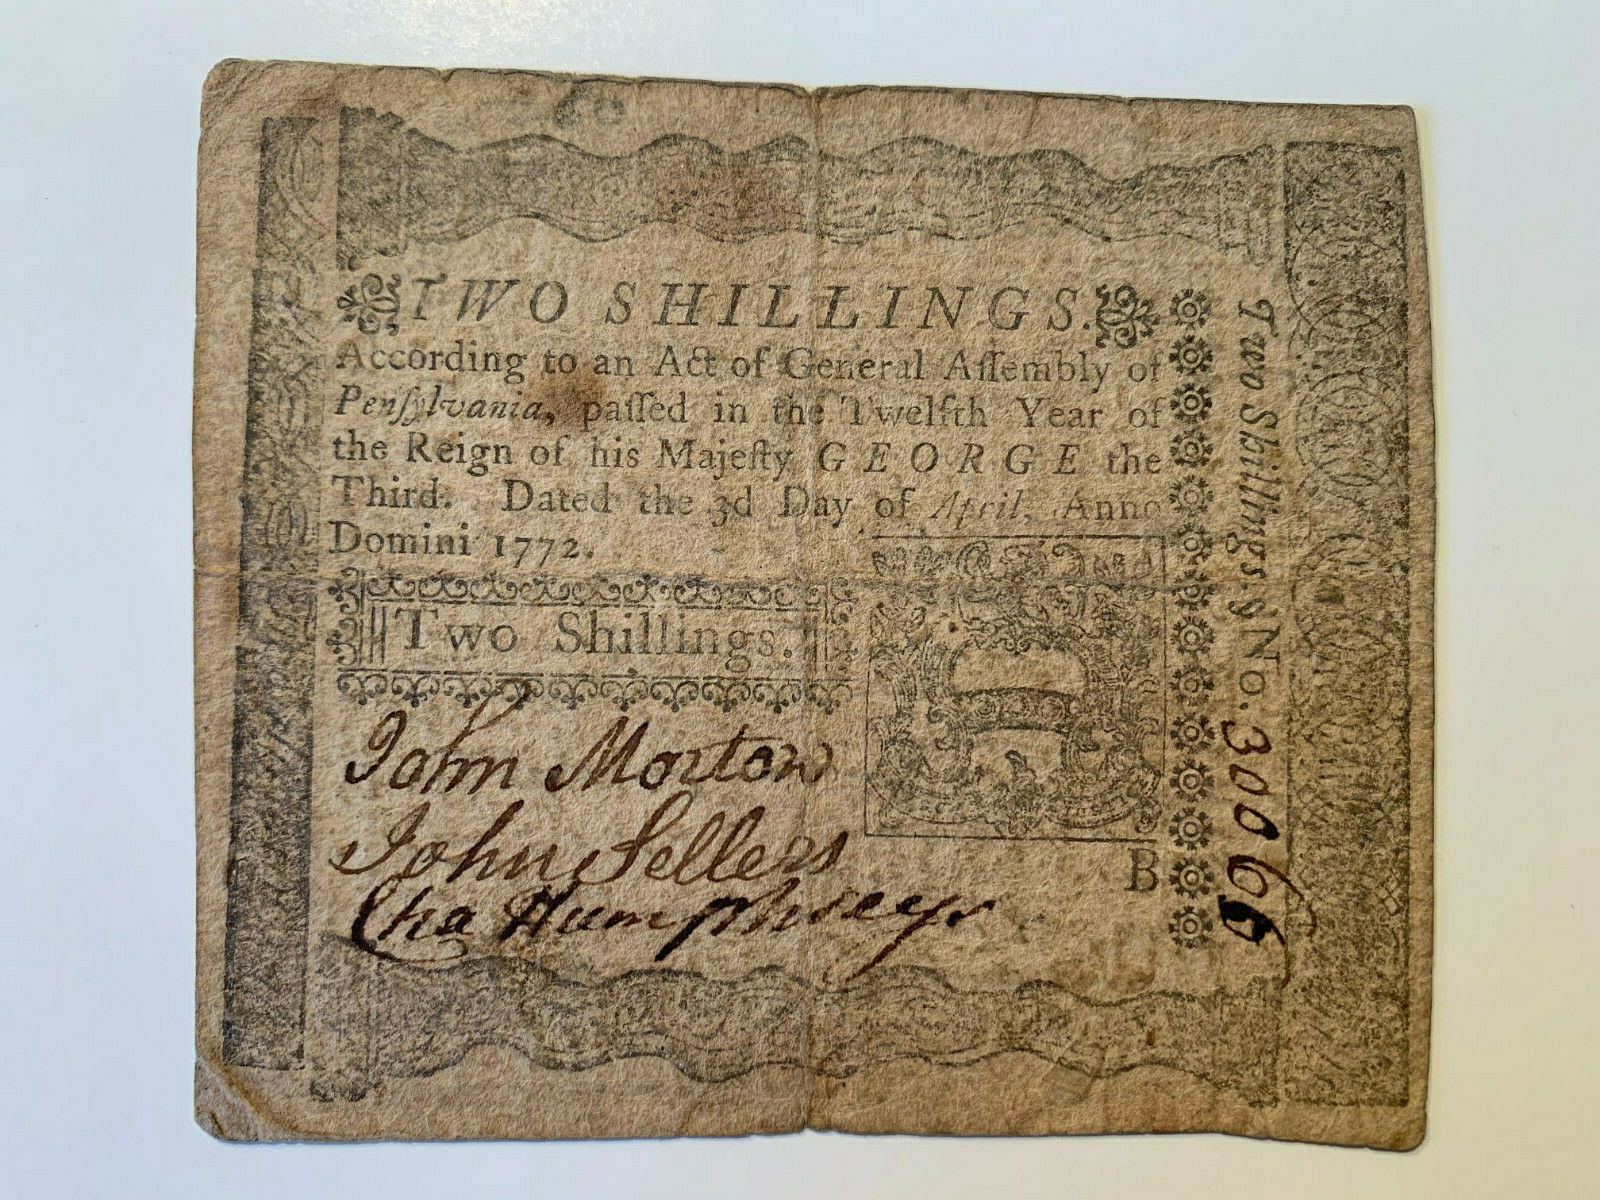 TWO SHILLINGS.
According to an Act of General Aſſembly of
Penſylvania, paſſed in the Twelfth Year of
the Reign of his Majeſty GEORGE the
Third. Dated the 3d Day of April, Anno
Domini 1772.
Two Shillings.
John Morton
John Sellers
Cha Humphreys
B
Two Shillings. No. 30066